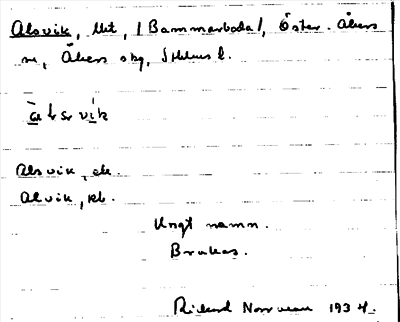 Alsvik, lht, (Bammarboda), Öster-Åkers
sn, Åkers skg, Sthlms l.
Alsvik, ek.
Alvik, kb.
Ungt namn.
Brukas.
Rickard 1934.